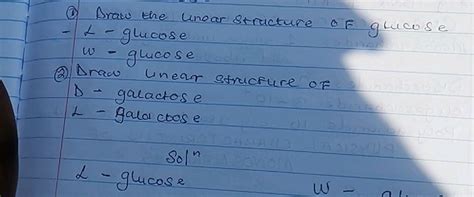 ① Draw the linear structure of glucose
- L - glucose
W - glucose
② Draw linear structure of
D - galactose
L - galactose
Solⁿ
L - glucose W -